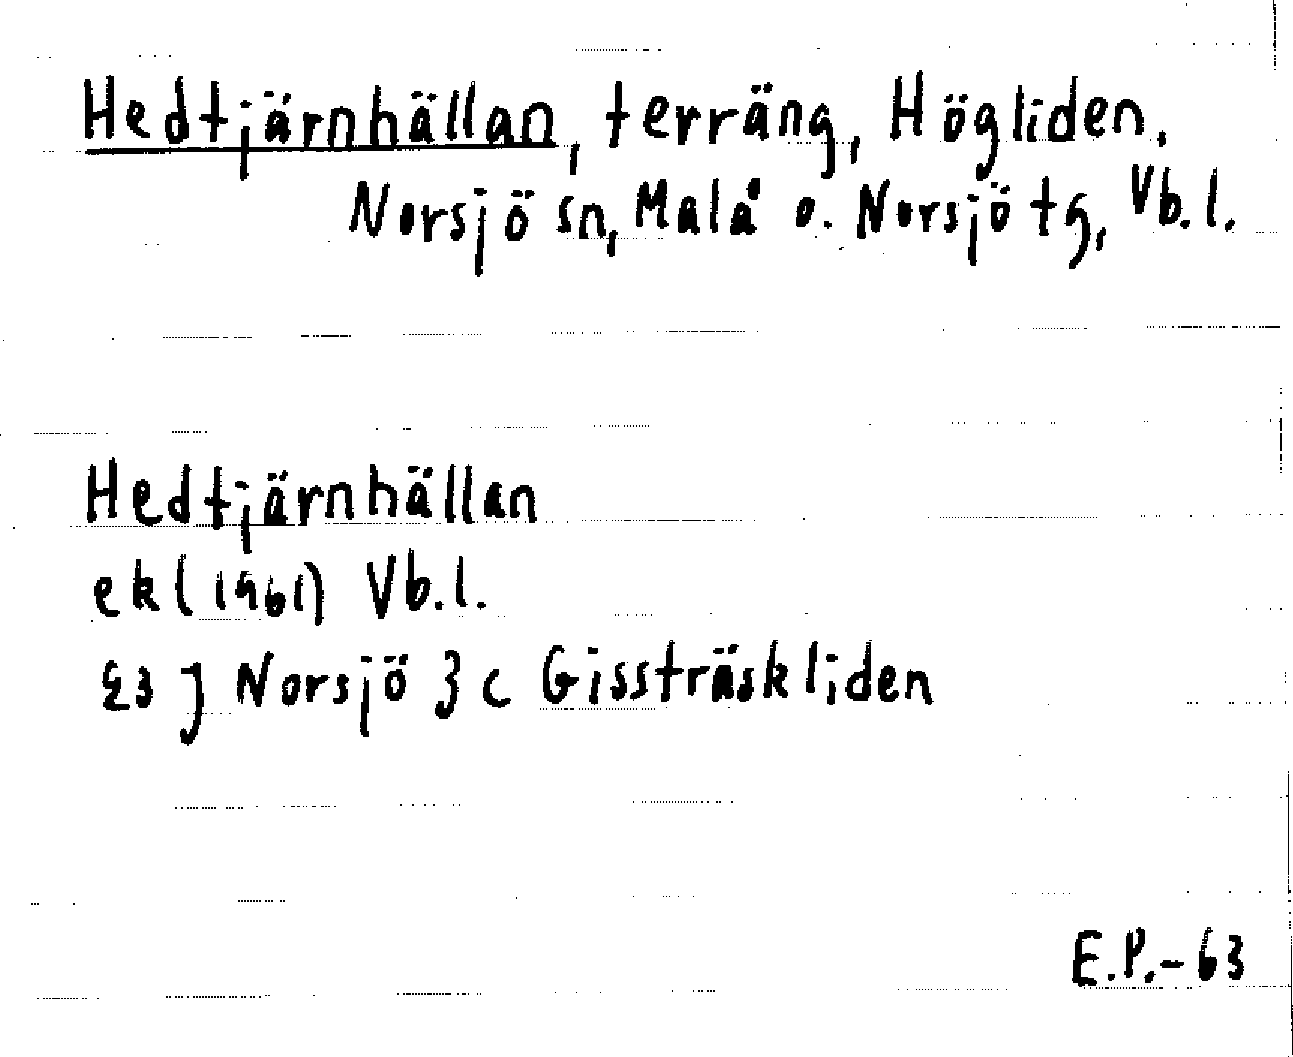 Hedtjärnhällan, terräng, Högliden.
Norsjö sn, Malå o. Norsjö tg, Vb.l.
Hedtjärnhällan
ek (1961) Vb.l.
23 J Norsjö 3 c Gissträskliden
E.P.-63